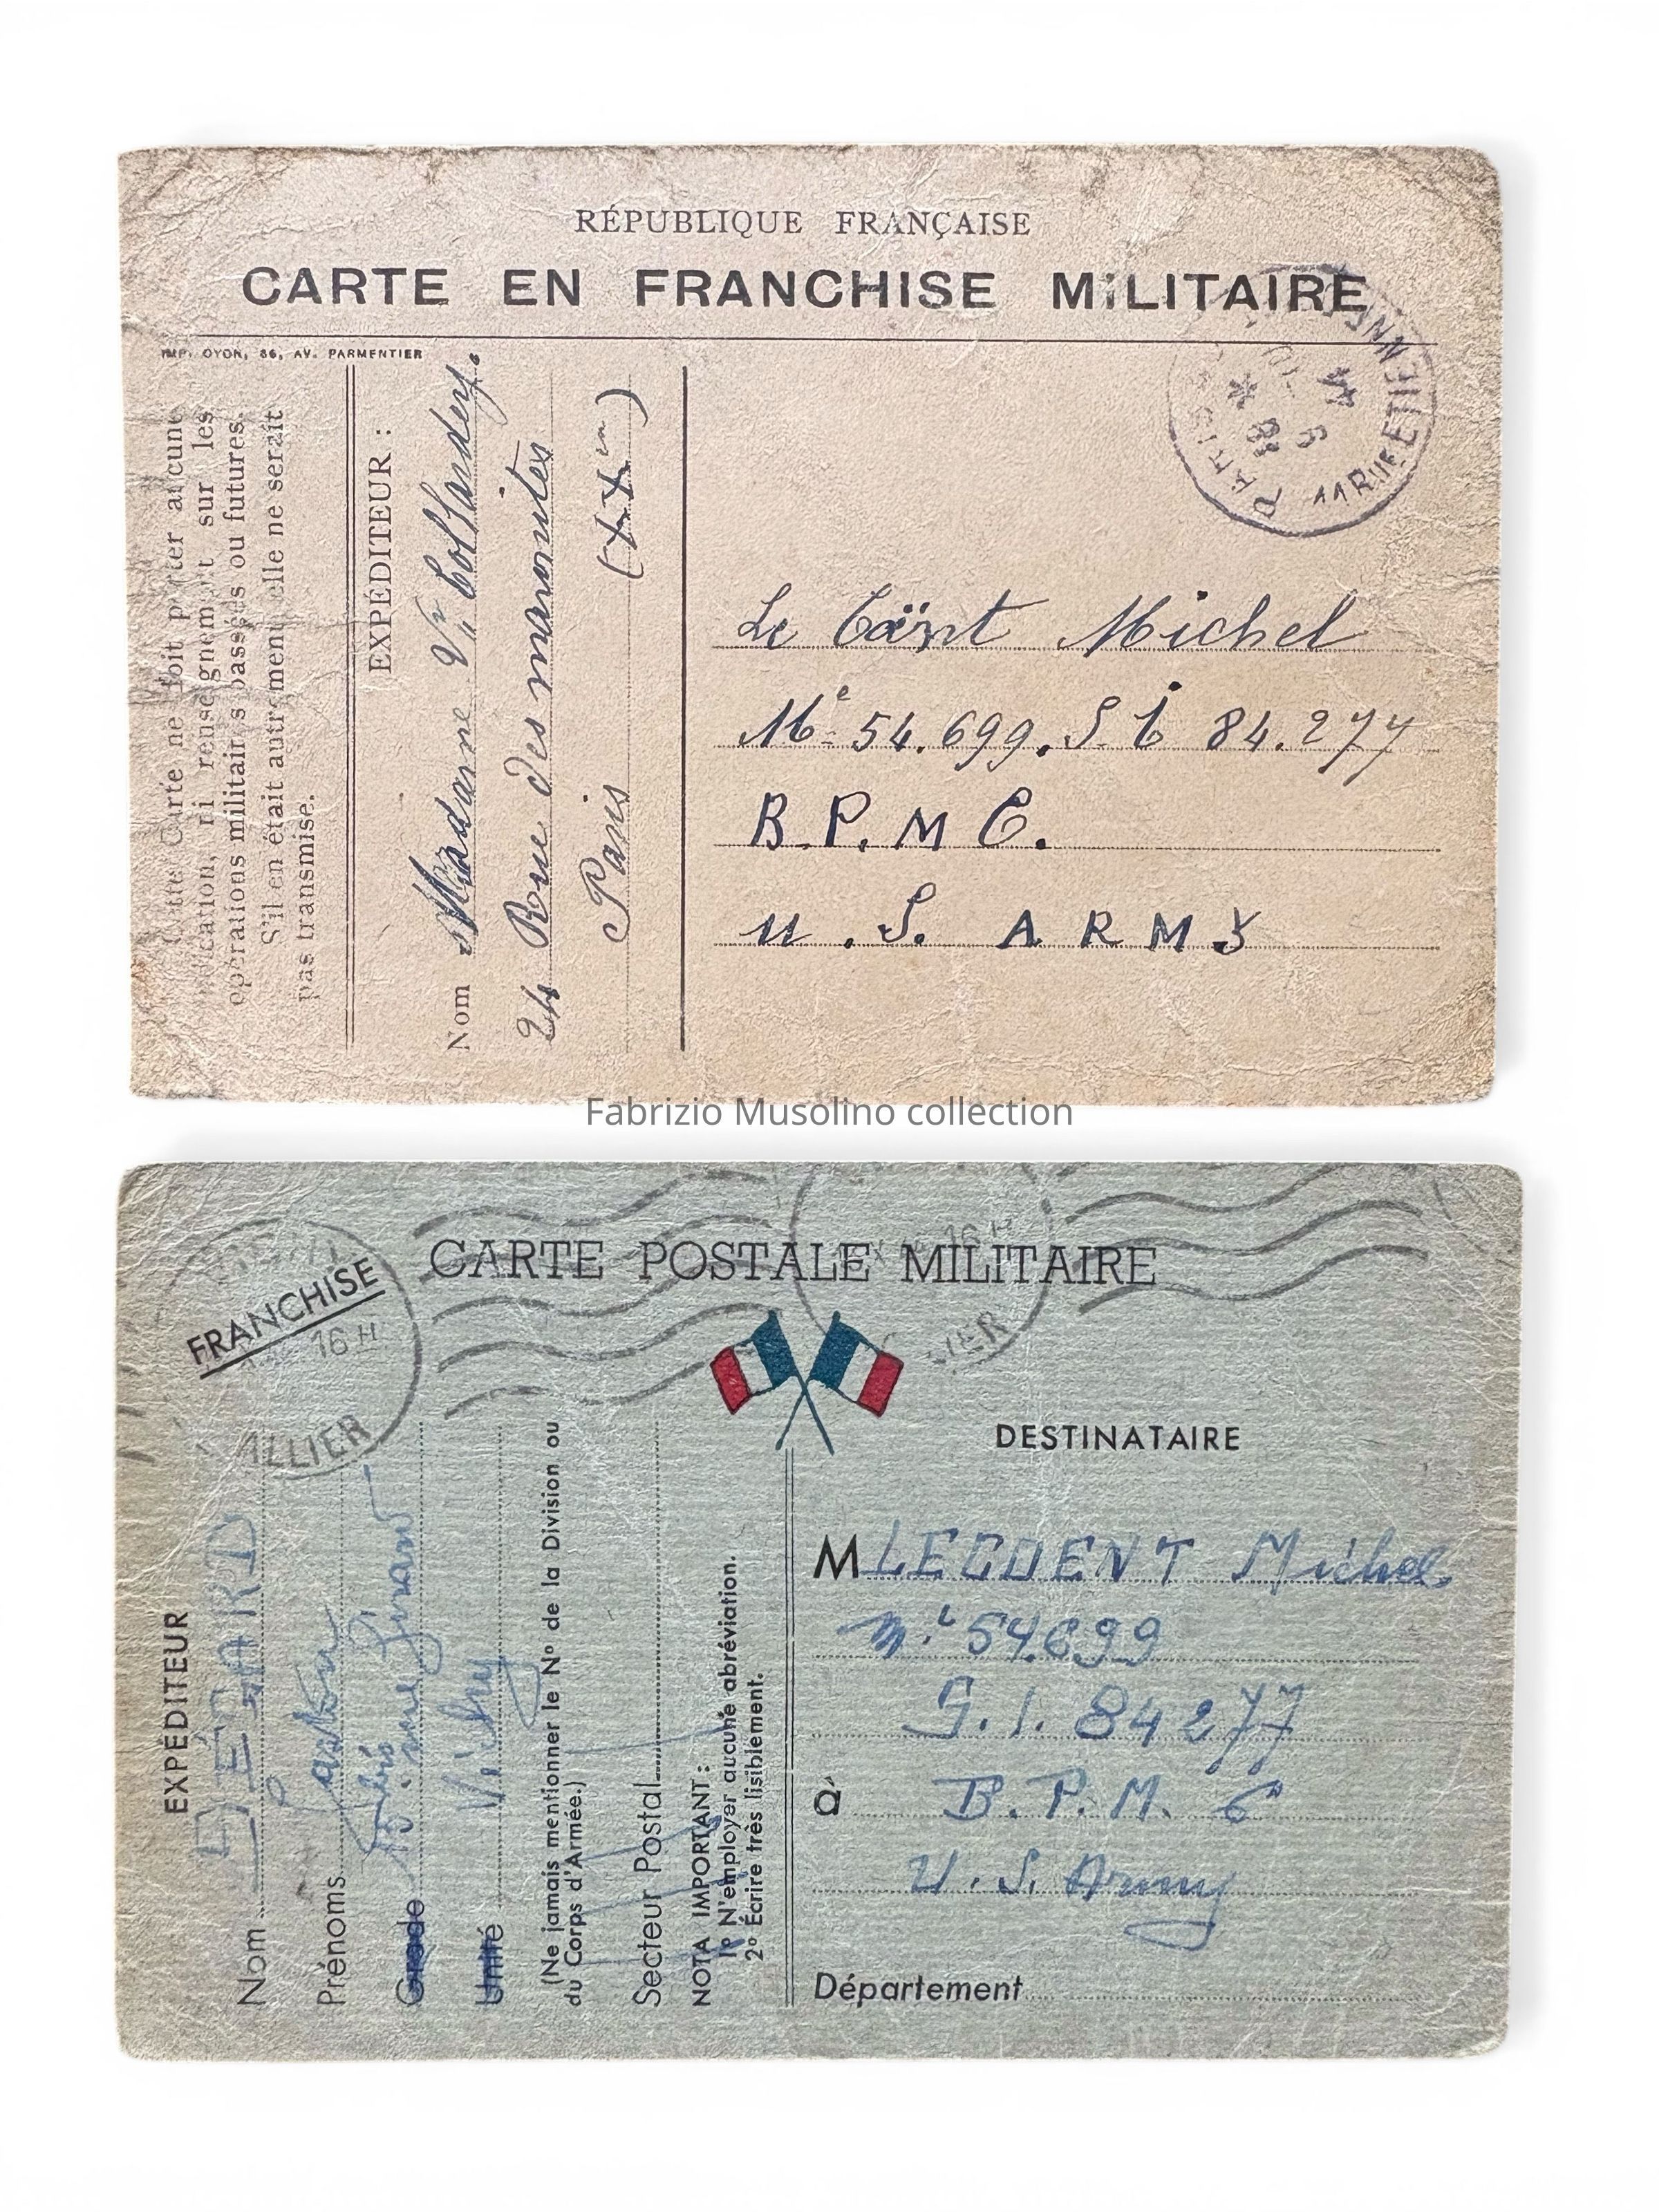 RÉPUBLIQUE FRANÇAISE
CARTE EN FRANCHISE MILITAIRE
IMP. OYON, 86, AV. PARMENTIER
Cette Carte ne doit porter aucune
indication, ni renseignement sur les
opérations militaires passées ou futures.
S'il en était autrement elle ne serait
pas transmise.
EXPÉDITEUR :
Nom Madame Vve
24 Rue des maronites
Paris (XXe)
PARIS
8
6
44
R. ETIENNE
Le Cöent Michel
Mle 54.699. S I 84.277
B. P. M C.
U. S. ARMY
Fabrizio Musolino collection
CARTE POSTALE MILITAIRE
FRANCHISE
16 H
ALLIER
16 H
EXPÉDITEUR
Nom
Prénoms Gaston
Grade
Unité Vichy
(Ne jamais mentionner le No de la Division ou
du Corps d'Armée.)
Secteur Postal
NOTA IMPORTANT :
1o N'employer aucune abréviation.
2o Écrire très lisiblement.
DESTINATAIRE
M LECOENT Michel
Mle 54.699
S.I. 84277
à B.P.M. C
U.S. Army
Département